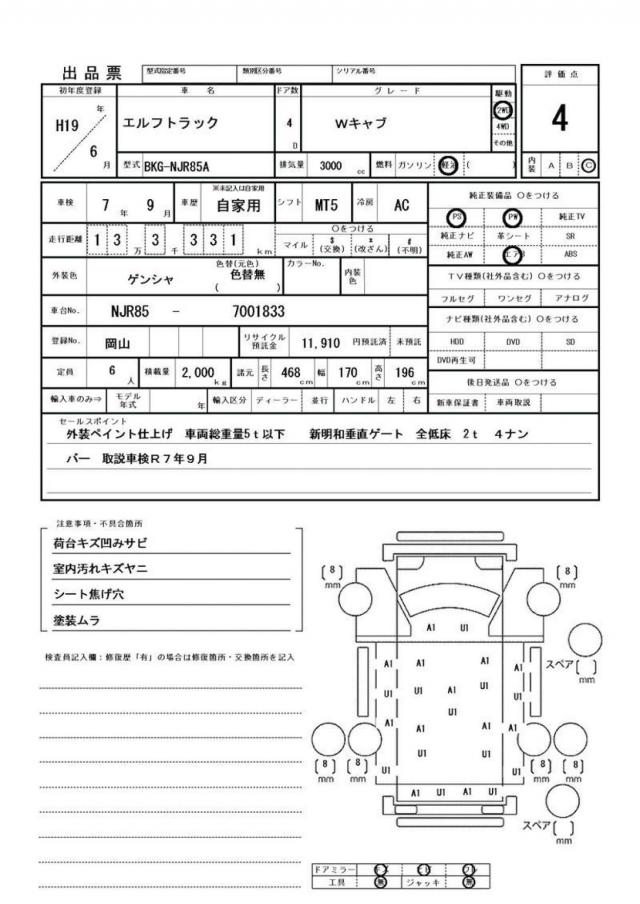 出品票 型式指定番号 類別区分番号 シリアル番号
評価点
初年度登録 車名 ドア数 グレード 駆動
H19年 エルフトラック 4D Wキャブ 2WD
4WD
6月 その他
4
型式 BKG-NJR85A 排気量 3000cc 燃料 ガソリン 軽油 ( ) 内装 A B C
車検 7年 9月 車歴 ※未記入は自家用 自家用 シフト MT5 冷房 AC
純正装備品 〇をつける
PS PW 純正TV
走行距離 13万3千331km 〇をつける
マイル $(交換) *(改ざん) #(不明)
純正ナビ 革シート SR
純正AW エアB ABS
外装色 ゲンシャ 色替(元色) 色替無 ( ) カラーNo. 内装色
TV種類(社外品含む) 〇をつける
フルセグ ワンセグ アナログ
車台No. NJR85 - 7001833
ナビ種類(社外品含む) 〇をつける
登録No. 岡山 リサイクル預託金 11,910 円預託済 未預託
HDD DVD SD
DVD再生可
定員 6人 積載量 2,000kg 諸元 長さ 468cm 幅 170cm 高さ 196cm
後日発送品 〇をつける
輸入車のみ⇒ モデル年式 年 輸入区分 ディーラー 並行 ハンドル 左 右 新車保証書 車両取説
セールスポイント
外装ペイント仕上げ 車両総重量5t以下 新明和垂直ゲート 全低床 2t 4ナン
バー 取説車検R7年9月
注意事項・不具合箇所
荷台キズ凹みサビ
室内汚れキズヤニ
シート焦げ穴
塗装ムラ
検査員記入欄:修復歴「有」の場合は修復箇所・交換箇所を記入
[8]mm [8]mm
A1 U1
スペア[ ]mm
A1 A1 A1
U1 U1 A1 U1 U1
U1
A1 A1 A1 A1
U1 U1
U1 U1
[8]mm [8]mm [8]mm [8]mm
A1 U1 A1 U1
スペア[ ]mm
ドアミラー
工具 無 ジャッキ 無